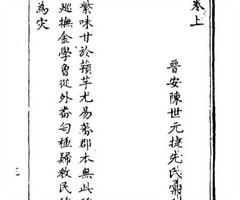 卷上
晉安陳世元捷先氏彙
紫味甘於蘋芋尤易蕃郡本無此
巡撫金學曾從外番匄種歸教民
為灾